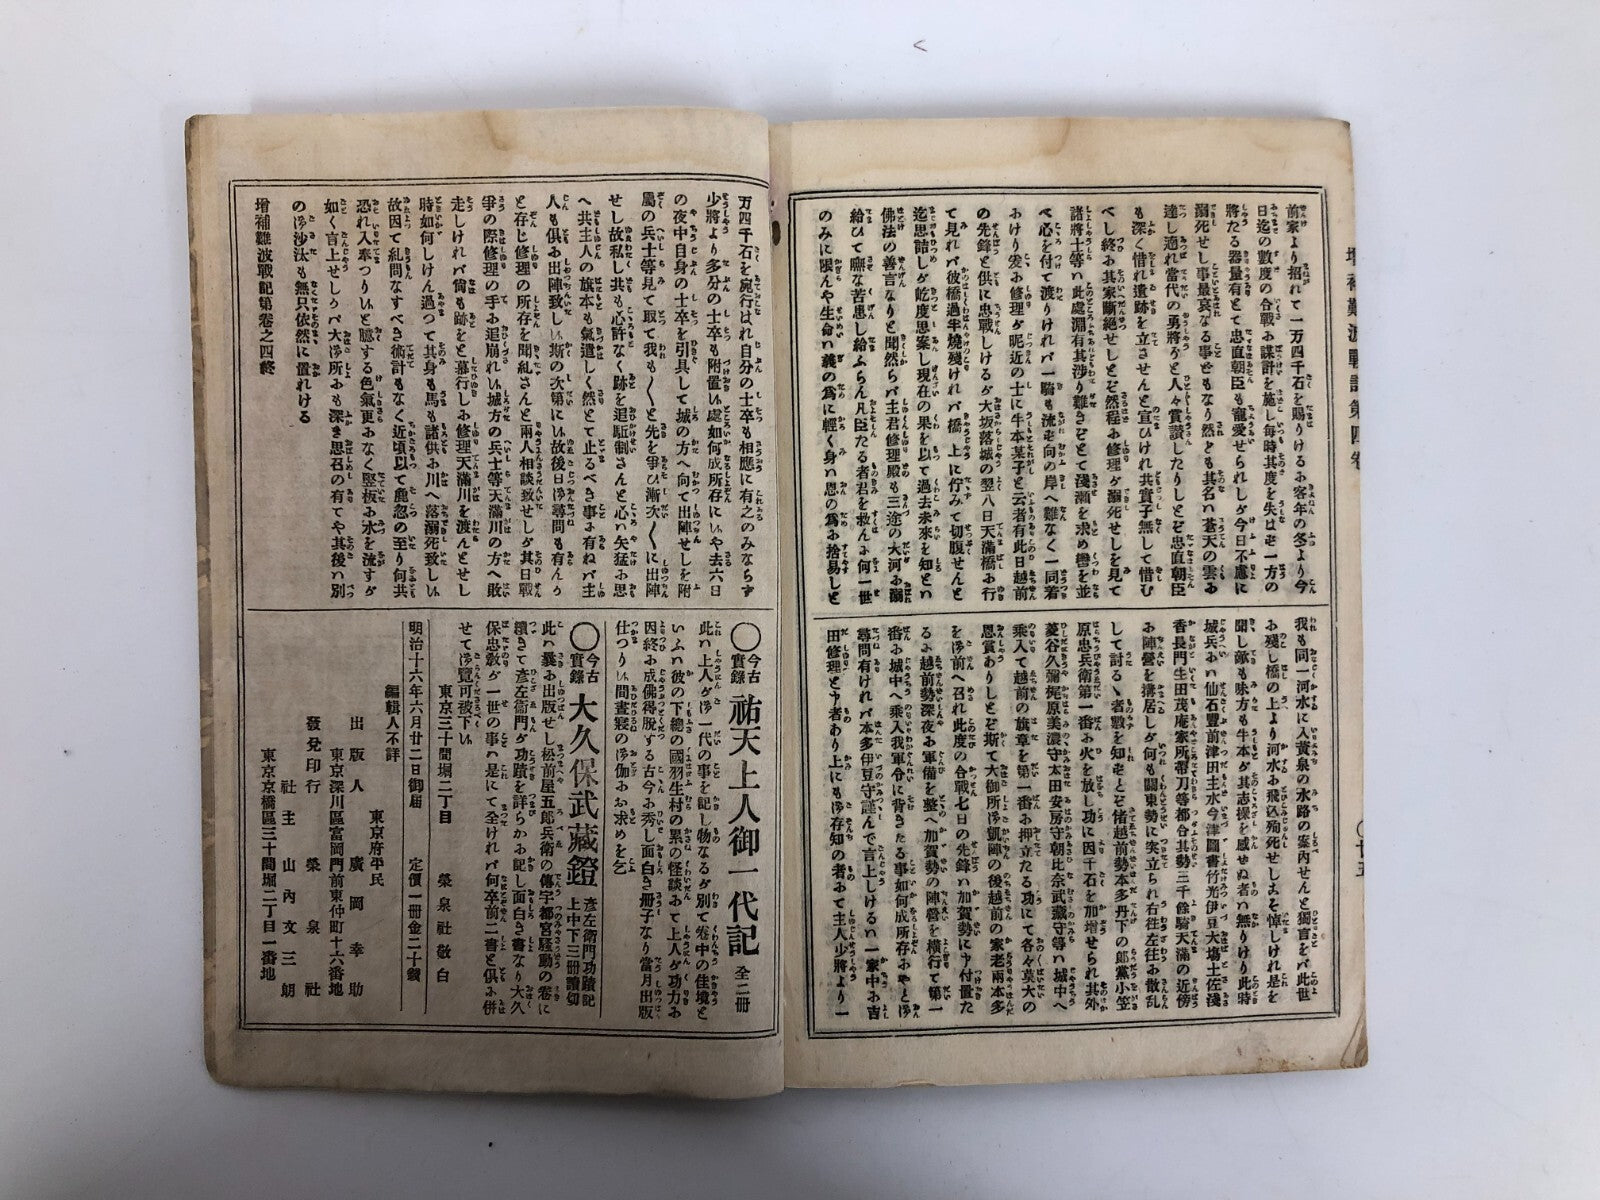 増補難波戰記第四卷
〇廿五
前家より招れて一万四千石を賜りけるお客年の冬より今
日迄の數度の合戰お謀計を施し毎時其度を失はも一方の
將たる器量有とて忠直朝臣も寵愛せられしゟ今日不慮に
溺死せし事最哀なる事どもなり然とも其名ハ蒼天の雲お
達し適れ當代の勇將ゟと人々賞讃したりしとぞ忠直朝臣
も深く惜れ遺跡を立させんと宣ひけれ共實子無して惜む
べし終お其家断絶せしとぞ然程お修理ゟ溺死せしを見て
諸將士等ハ此處淵有其渉り難きぞとて淺瀬を求め轡を並
べ心を付て渡りけれバ一騎も流も向の岸へ難なく一同若
おけり爰お修理ゟ昵近の士に牛本某子と云者有此日越前
の先鋒と供に忠戰しけるゟ大坂落城の翌八日天滿橋お行
て見れバ彼橋過半燒殘けれバ橋上に佇みて切腹せんと
迄思詰しゟ屹度思案し現在の果を以て過去未來を知とハ
佛法の善言なりと聞然らバ主君修理殿も三途の大河お溺
給ひて嘸な苦患し給ふらん凡臣たる者君を救んお何一世
のみに限んや生命ハ義の爲に輕く身ハ恩の爲お捨易しと
我も同一河水に入黄泉の水路の案内せんと獨言をバ此世
お殘し橋の上より河水お飛込殉死せしこそ悼しけれ是を
聞し敵も味方も牛本ゟ其志操を感せぬ者ハ無りけり此時
城兵おハ仙石豐前津田主水今津圖書竹光伊豆大場土佐淺
香長門生田茂庵家所帶刀等都合其勢三千餘騎天滿の近傍
お陣營を搆居しゟ何も關東勢に突立られ右往左往お散乱
して討るゝ者數を知もとぞ偖越前勢本多丹下の郎黨小笠
原忠兵衛第一番お火を放し功に因千石を加増せられ其外
菱谷久彌梶原美濃守太田安房守朝比奈武藏守等ハ城中へ
乘入て越前の旗章を第一番お押立たる功にて各々莫大の
恩賞ありしとぞ斯て大御所御凱陣の後越前の家老兩本多
を御前へ召れ此度の合戰七日の先鋒ハ加賀勢に申付置た
るお越前勢深夜お軍備を整へ加賀勢の陣營を横行て第一
番お城中へ乘入我軍令に背きたる事如何成所存おやと御
尋問有けれバ本多伊豆守謹んで言上しけるハ一家中お吉
田修理と申者あり上にも御存知の者おて主人少將より一
万四千石を宛行はれ自分の士卒も相應に有之のみならず
少將より多分の士卒も附置ハ處如何成所存にハや去六日
の夜中自身の士卒を引具して城の方へ向て出陣せしを附
屬の兵士等見て取て我も〱と先を爭ひ漸次〱に出陣
せし故私し共も心許なく跡を追駈制さんと心ハ矢猛お思
へ共主人の旗本も氣遣しく然とて止るべき事お有ねバ主
人も俱お出陣致しハ斯の次第にハ故後日御尋問も有んゟ
と存じ修理の所存を聞糺さんと兩人相談致せしゟ其日戰
爭の際修理の手お追崩れハ城方の兵士等天滿川の方へ敗
走しけれバ尙も跡をと慕行しお修理天滿川を渡んとせし
時如何しけん過つて其身も馬も諸供お川へ落溺死致しハ
故因て糺問なすべき術計もなく近頃以て麁忽の至り何共
恐れ入奉つりハと臆する色氣更おなく竪板お水を流すゟ
如く言上せしゟバ大御所おも深き思召の有てや其後ハ別
の御沙汰も無只依然に置れける
增補難波戰記第卷之四終
〇今古實錄 祐天上人御一代記 全二冊
此ハ上人ゟ御一代の事を記し物なるゟ別て卷中の佳境と
いふハ彼の下總の國羽生村の累の怪談おて上人ゟ功力お
因終お成佛得脱する古今お秀し面白き册子なり當月出版
仕つりハ間晝寢の御伽おお求めを乞
〇今古實錄 大久保武藏鐙 彦左衞門功蹟記 上中下三冊讀切
此ハ曩お出版せし松前屋五郎兵衛の傳宇都宮騷動の卷に
續きて彦左衞門ゟ功蹟を詳らかお記し面白き書なり大久
保忠敎ゟ一世の事ハ是にて全けれバ何卒前二書と俱お併
せて御覽可被下ハ
東京三十間堀二丁目 榮泉社敬白
明治十六年六月廿二日御届 定價一冊金二十錢
編輯人不詳
東京府平民
出版人 廣岡幸助
東京深川區富岡門前東仲町十六番地
發兌印行 榮泉社
社主 山内文三朗
東京京橋區三十間堀二丁目一番地